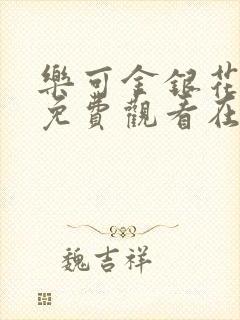 樂可金銀花
免費觀看在
魏吉祥